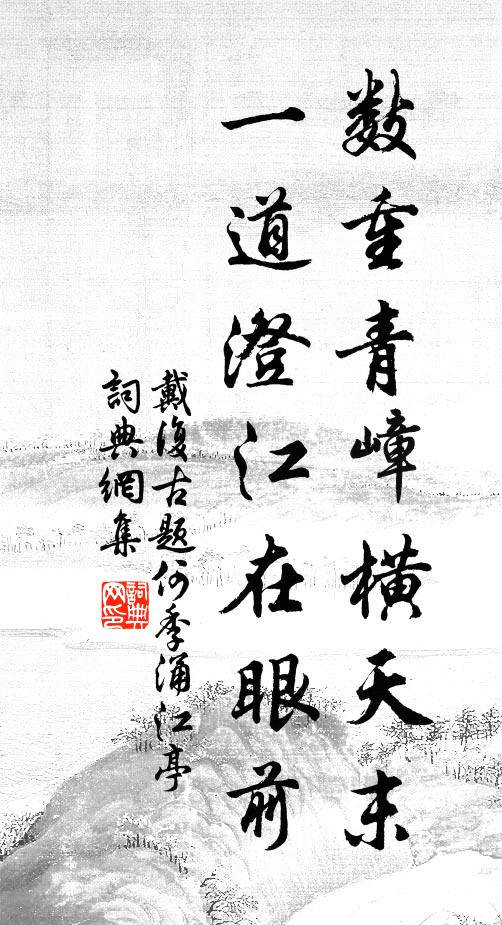 数重青嶂橫天末
一道澄江在眼前
戴復古題何季涌江亭
詞典網集
詞典网印